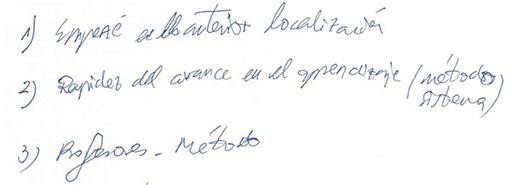 1) Empecé en la anterior localización
2) Rapidez del avance en el aprendizaje (método
sistema)
3) Profesores - Método